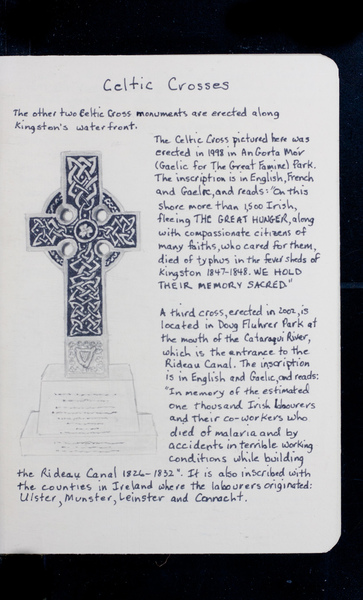 Celtic Crosses
The other two Celtic Cross monuments are erected along
Kingston's waterfront.
The Celtic Cross pictured here was
erected in 1998 in An Gorta Mór
(Gaelic for The Great Famine) Park.
The inscription is in English, French
and Gaelic, and reads: "On this
shore more than 1,500 Irish,
fleeing THE GREAT HUNGER, along
with compassionate citizens of
many faiths, who cared for them,
died of typhus in the fever sheds of
Kingston 1847-1848. WE HOLD
THEIR MEMORY SACRED."
A third cross, erected in 2002, is
located in Doug Fluhrer Park at
the mouth of the Cataraqui River,
which is the entrance to the
Rideau Canal. The inscription
is in English and Gaelic, and reads:
"In memory of the estimated
one thousand Irish labourers
and their co-workers who
died of malaria and by
accidents in terrible working
conditions while building
the Rideau Canal 1826-1832". It is also inscribed with
the counties in Ireland where the labourers originated:
Ulster, Munster, Leinster and Connacht.